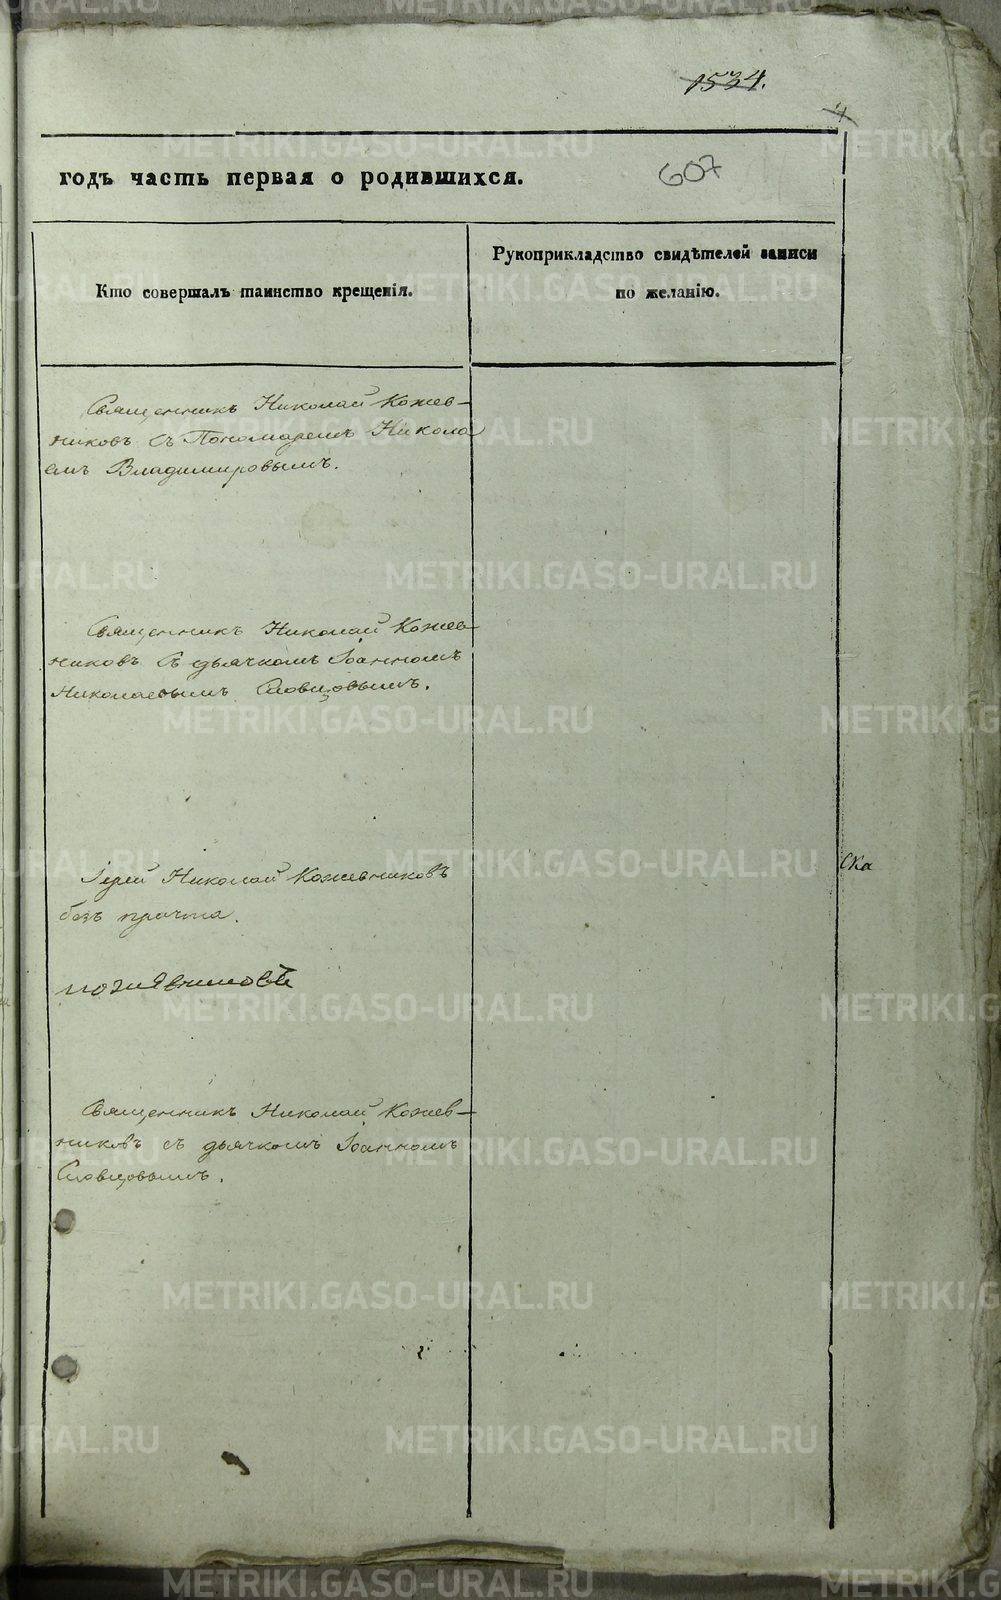 1534.
4
годъ часть первая о родившихся.
607
Кто совершалъ таинство крещенія.
Рукоприкладство свидѣтелей записи
по желанію.
Священникъ Николай Кожев-
никовъ съ Пономаремъ Никола
емъ Владимировымъ.
Священникъ Николай Кожев-
никовъ съ дьячкомъ Іоанномъ
Николаевымъ Словцовымъ.
Іерей Николай Кожевниковъ
безъ причта.
Священникъ Николай Кожев-
никовъ съ дьячкомъ Іоанномъ
Словцовымъ.
ска
METRIKI.GASO-URAL.RU